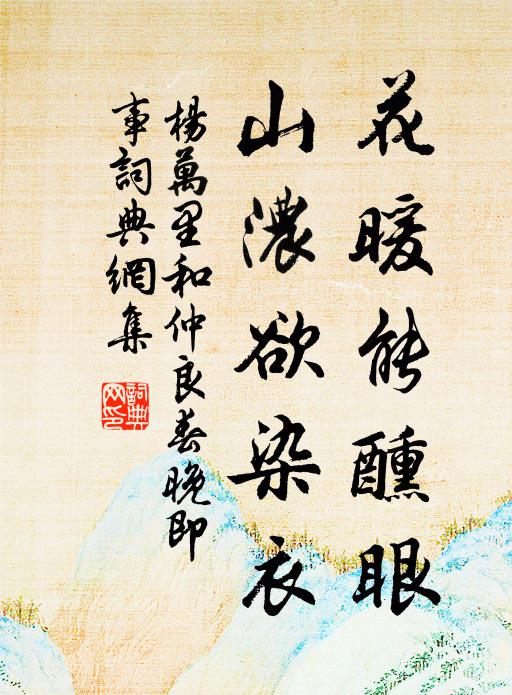 花暖能醺眼
山濃欲染衣
楊萬里和仲良春晚即
事詞典網集
詞典
网印